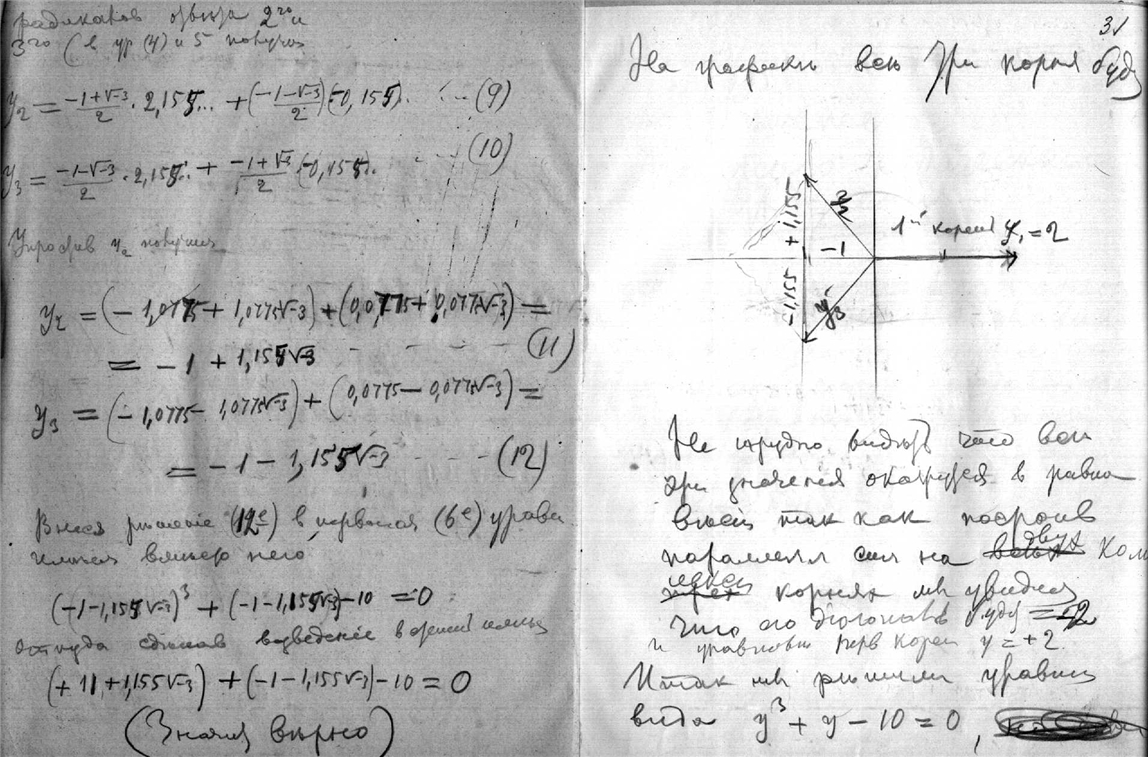 радикалов 2го и
3го (в ур (4) и 5 получ
y₂ = (-1+√-3)/2 · 2,155.. + ((-1-√-3)/2)(-0,155). --- (9)
y₃ = (-1-√-3)/2 · 2,155.. + (-1+√-3)/2 (-0,155). (10)
Упростив y₂ получим
y₂ = (-1,0775 + 1,0775√-3) + (0,0775 + 0,0775√-3) =
= -1 + 1,155√-3 - - - - (11)
y₃ = (-1,0775 - 1,0775√-3) + (0,0775 - 0,0775√-3) =
= -1 - 1,155√-3 - - - - (12)
Внеся решение (12е) в (6е) уравн
вместо него
(-1-1,155√-3)³ + (-1-1,155√-3) -10 = 0
Откуда сделав возведение в степень
(+11+1,155√-3) + (-1-1,155√-3) -10 = 0
(Значит верно)
31
На графики все три корня буду
y₂
+1,155
-1
1й корень y₁=2
-1,155
y₃
Не трудно видеть что все
три значения окажутся в равно
весии так как построив
параллел сил на двух
корнях мы увидим
что его диагональ буде = -2
и уравновес перв корен y = +2
Итак мы решили уравнен
вида y³ + y - 10 = 0,